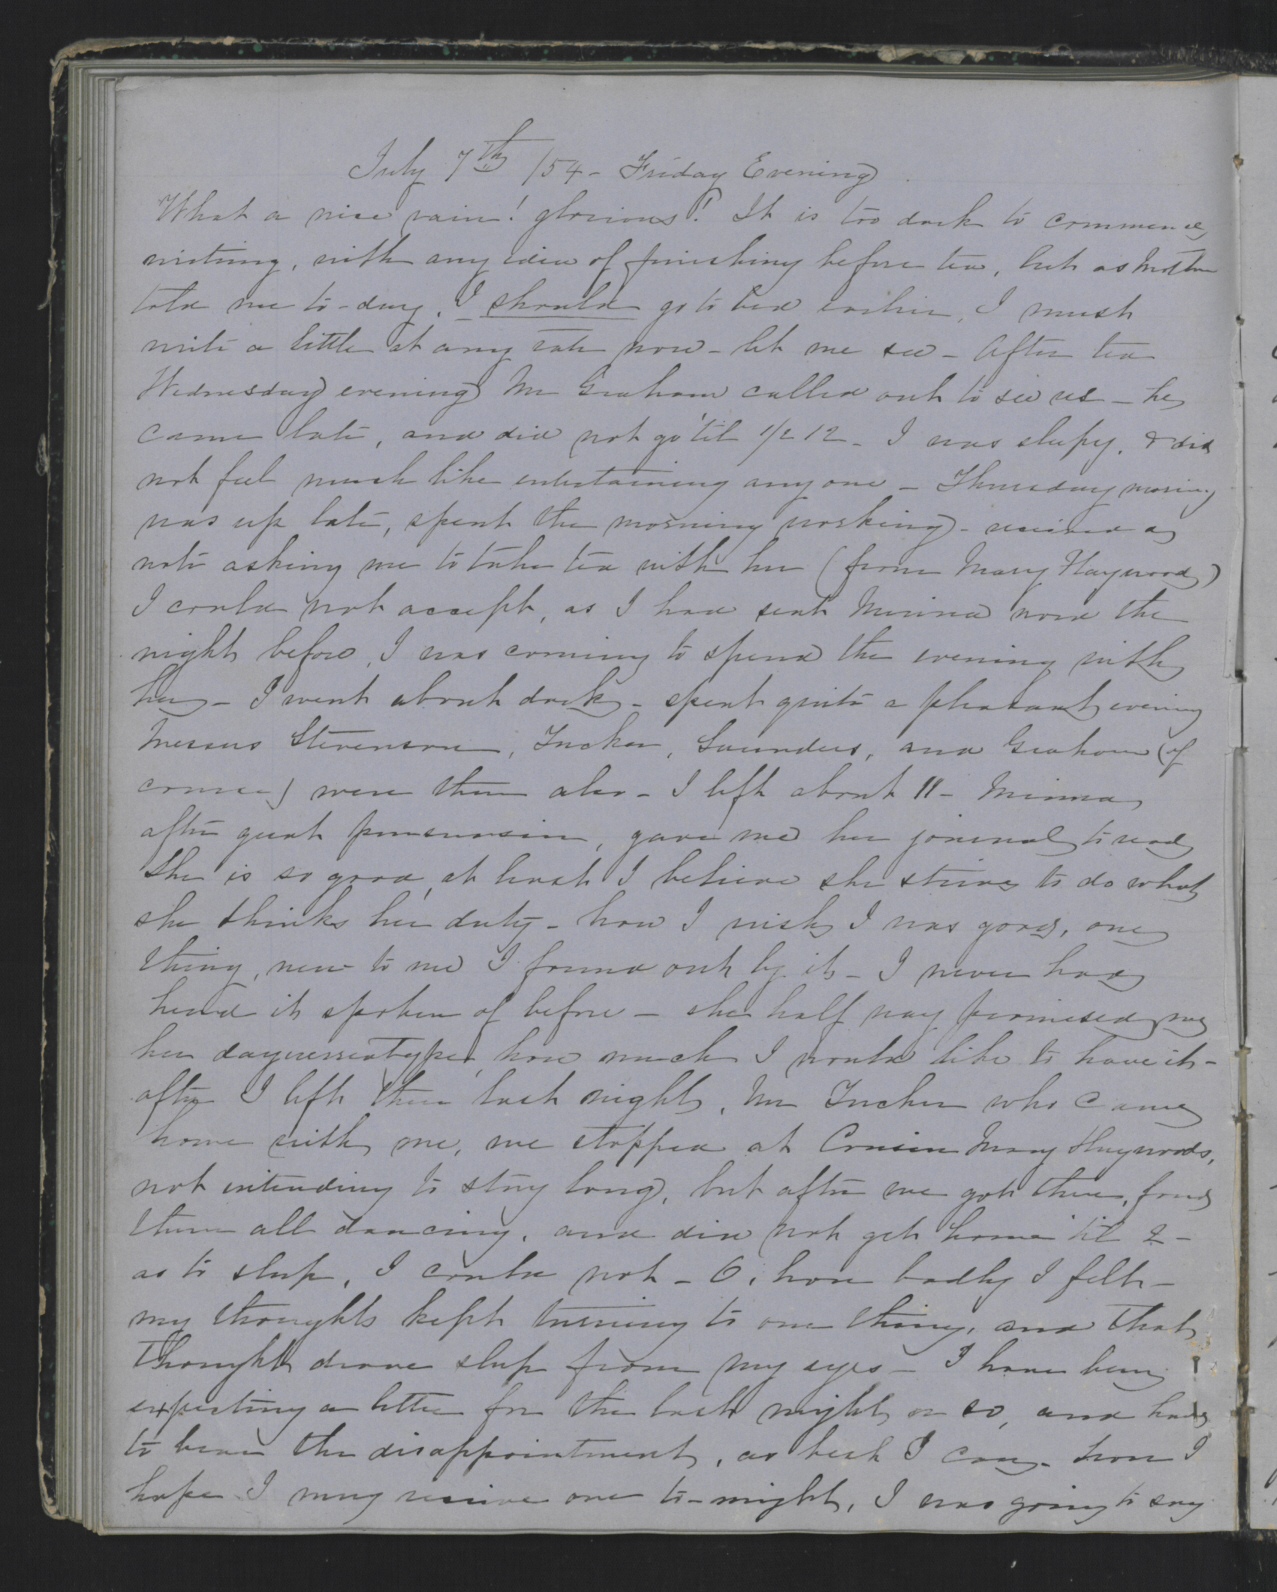 July 7th /54 - Friday Evening
What a nice rain! glorious! It is too dark to commence
writing, with any idea of finishing before tea, but as Mother
told me to-day, I should go to bed earlier, I must
write a little at any rate now - let me see - After tea
Wednesday evening Mr Graham called out to see us - he
came late, and did not go 'til 1/2 12 - I was sleepy, & did
not feel much like entertaining any one - Thursday morning
was up late, spent the morning working - received a
note asking me to take tea with her (from Mary Haywood)
I could not accept, as I had sent Minna word the
night before, I was coming to spend the evening with
her - I went about dark - spent quite a pleasant evening
Messrs Stevenson, Tucker, Saunders, and Graham (of
course) were there also - I left about 11 - Minna,
after great persuasion, gave me her journal to read
She is so good, at least I believe she strives to do what
she thinks her duty - how I wish I was good, one
thing, new to me I found out by it - I never had
heard it spoken of before - she half way promised me
her daguerreotype, how much I would like to have it -
after I left there last night, Mr Tucker who came
home with me, we stopped at Cousin Mary Haywoods,
not intending to stay long, but after we got there, found
them all dancing, and did not get home 'til 2 -
as to sleep, I could not - O, how badly I felt -
my thoughts kept turning to one thing, and that
thought drove sleep from my eyes - I have been
expecting a letter for the last night or so, and had
to bear the disappointment, as best I can - how I
hope I may receive one to-night, I was going to say